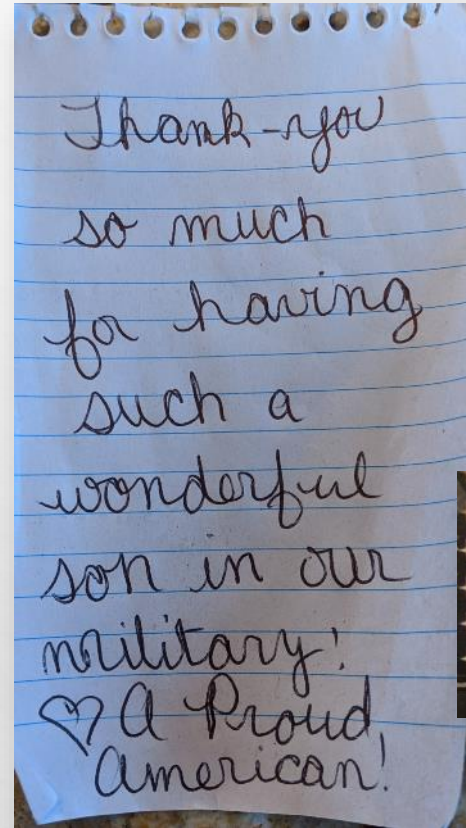 Thank-you
so much
for having
such a
wonderful
son in our
military!
♡ A Proud
American!